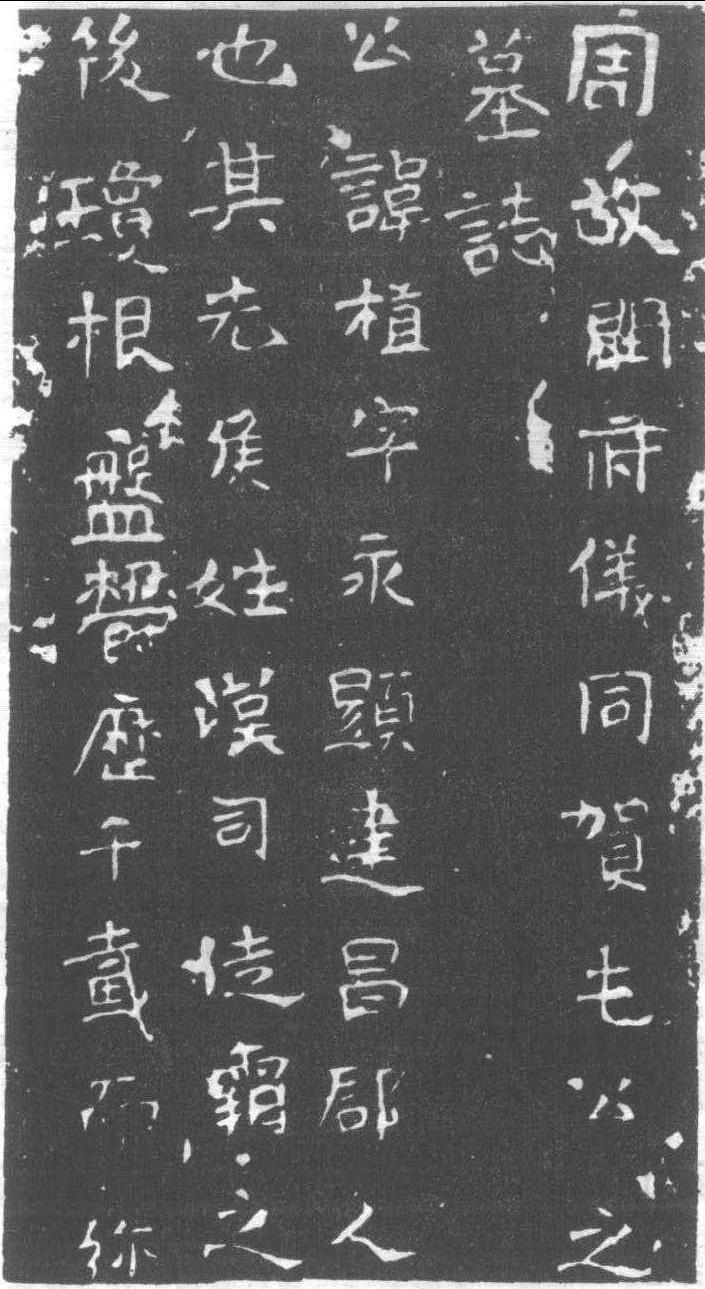 周故開府儀同賀屯公之
墓誌
公諱植字永顯建昌郡人
也其先侯姓漢司徒霸之
後瓌根盤鬱歷千載而弥